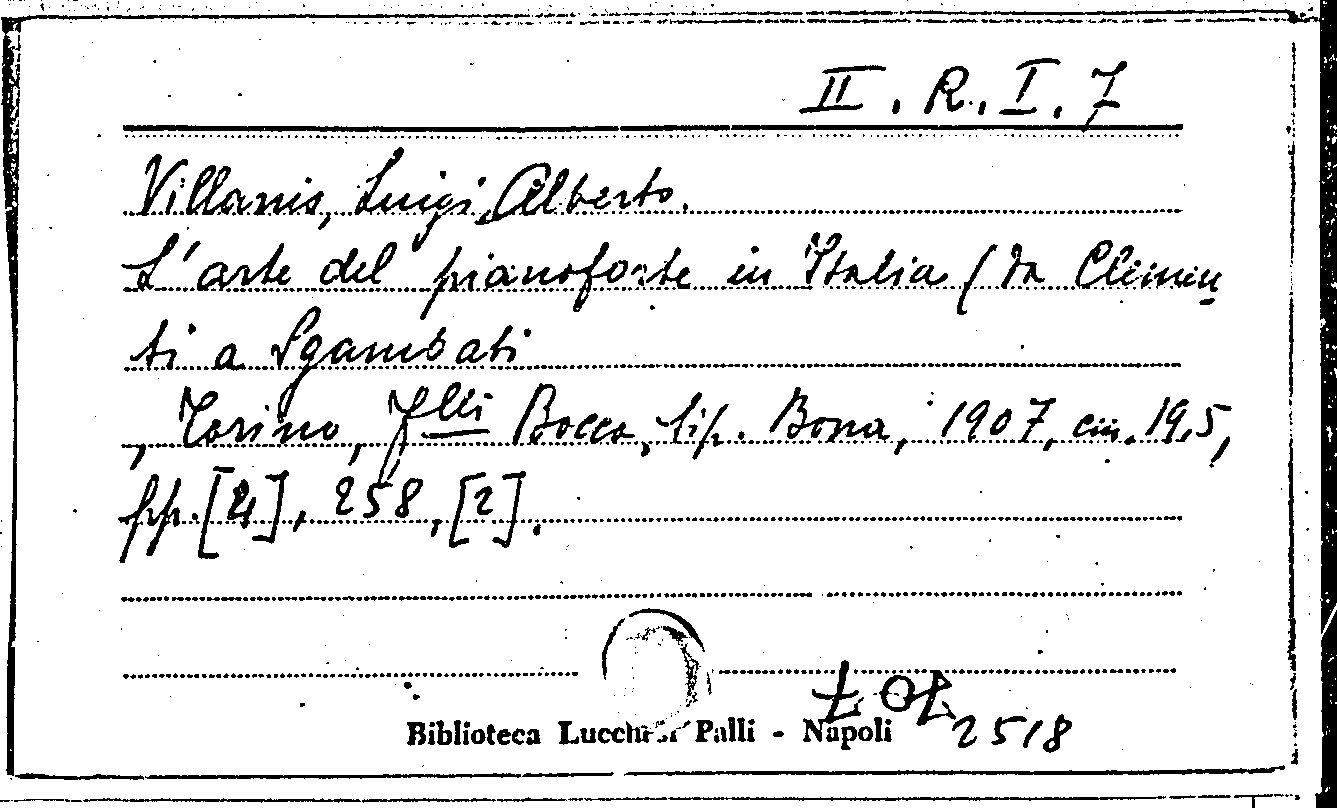 II. R. I. 7
Villanis, Luigi Alberto.
L'arte del pianoforte in Italia (da Clemen
ti a Sgambati
, Torino, Flli Bocca, tip. Bona, 1907, cm. 19,5,
pp. [4], 258, [2].
Biblioteca Lucchesi Palli - Napoli
2518